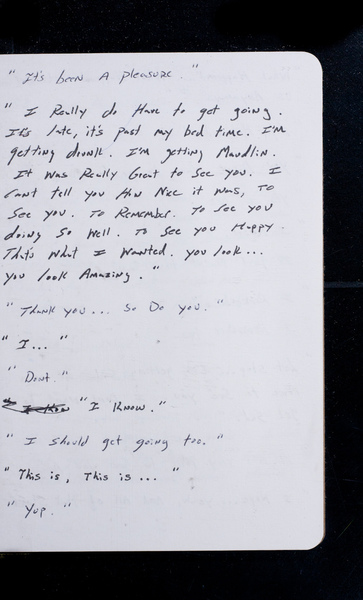 "It's been A pleasure."
"I Really do Have to get going.
It's late, it's past my bed time. I'm
getting drunk. I'm getting Maudlin.
It was Really Great to see you. I
cant tell you How Nice it was, To
See you. To Remember. To see you
doing So Well. To see you Happy.
That's what I wanted. you look...
you look Amazing."
"Thank you... So Do you."
"I..."
"Dont."
"I Know."
"I should get going too."
"This is, This is..."
"Yup."